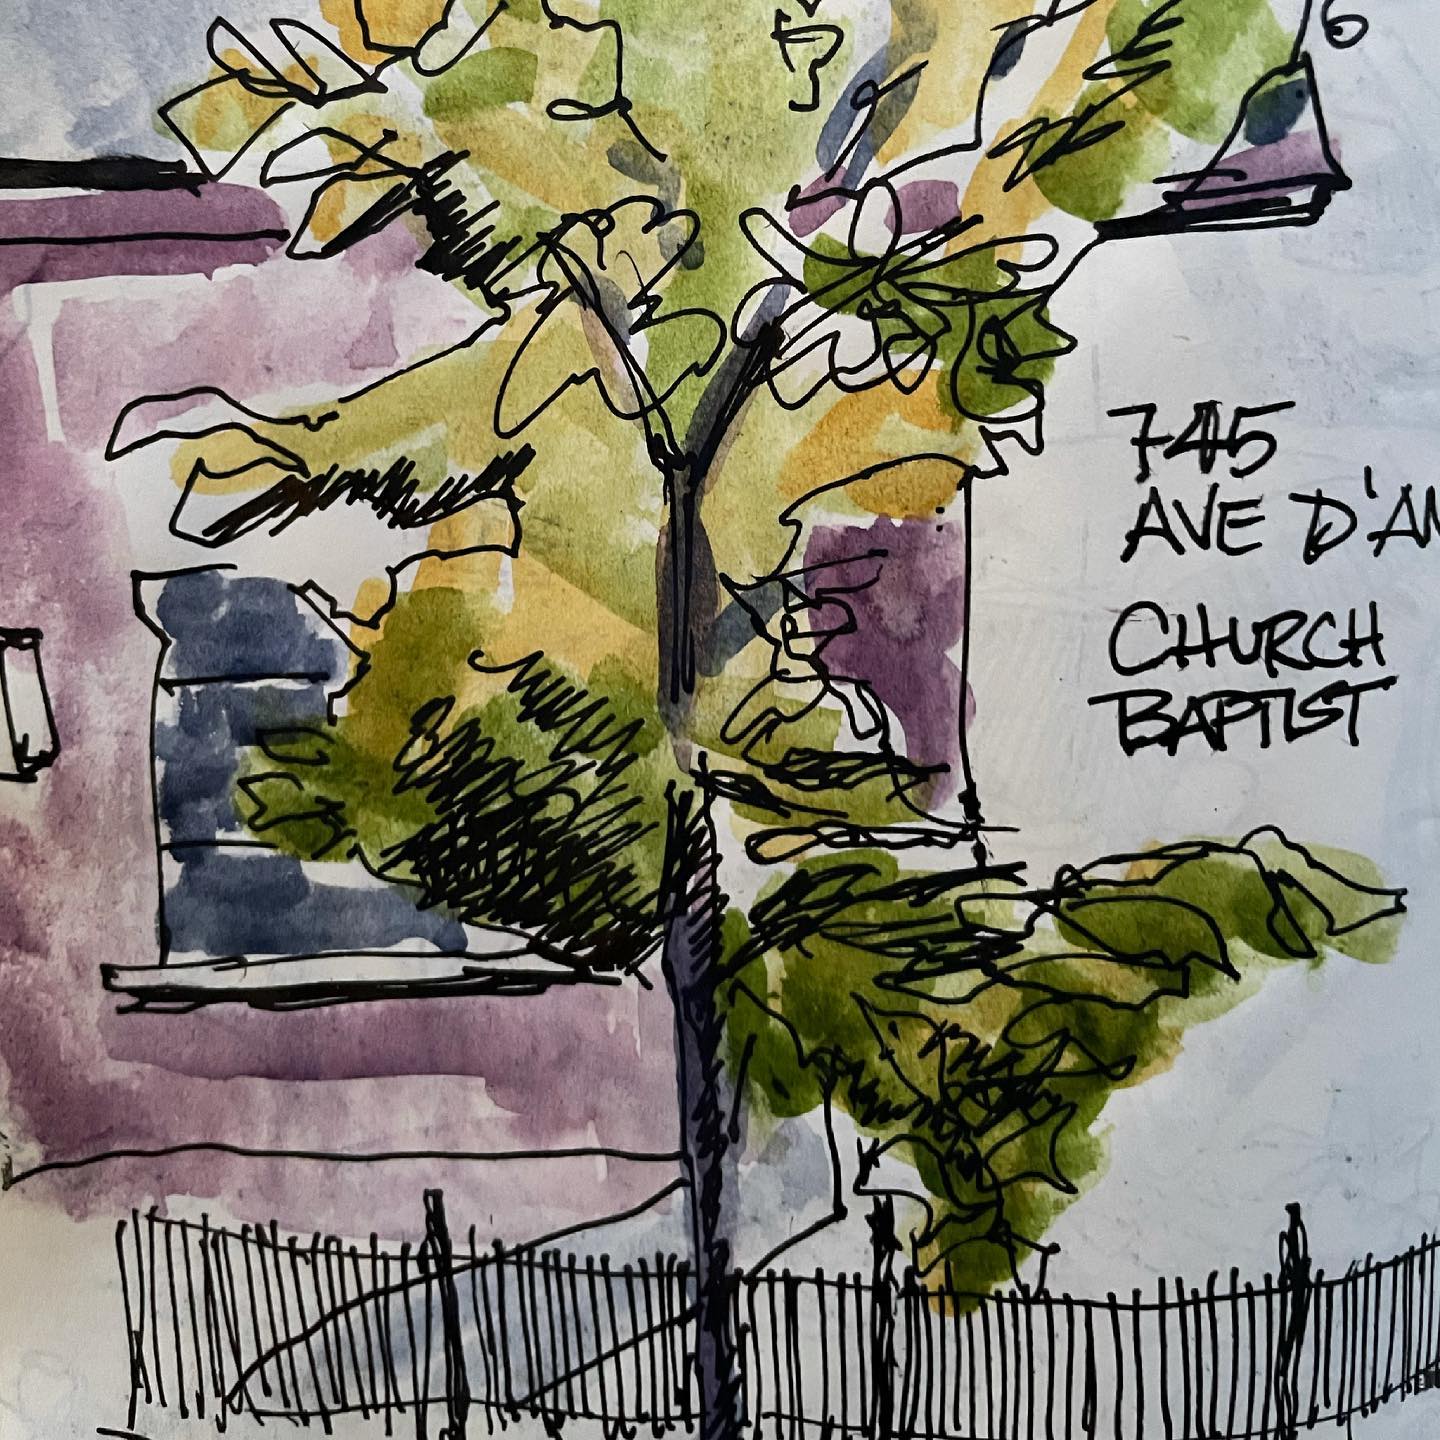 6
745
AVE D'AM
CHURCH
BAPTIST